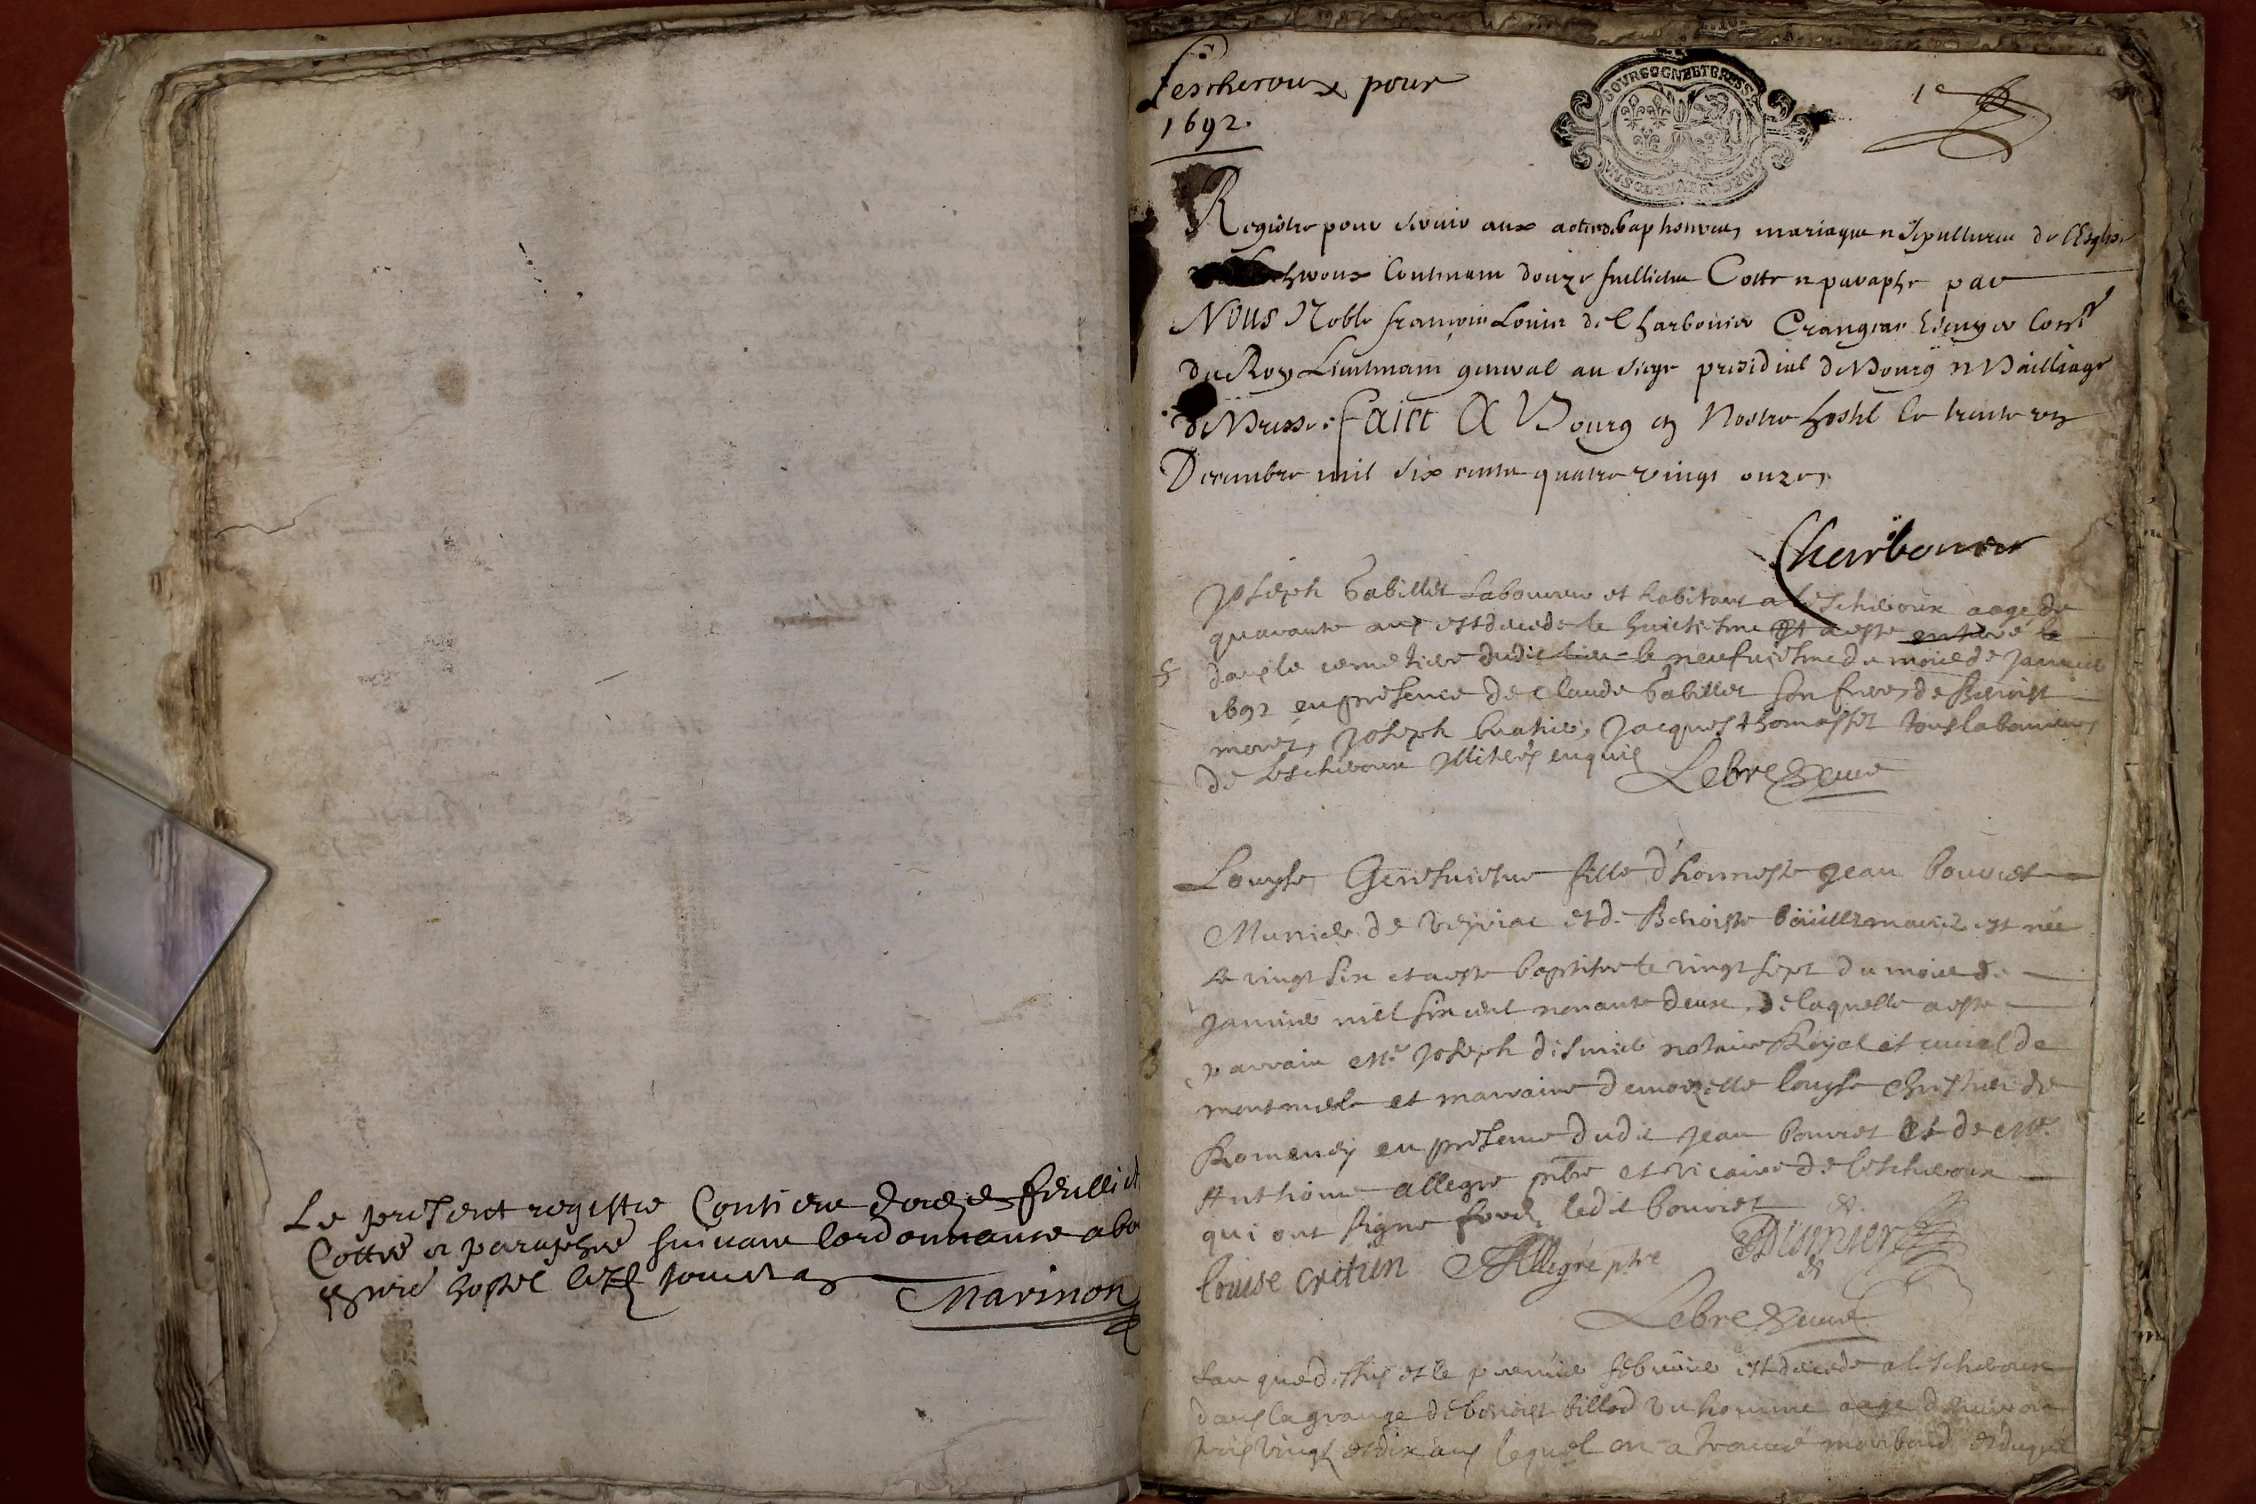 Le present registre Contient douze feuillet
Cotté et paraphé suivant lordonnance a bo
hostel
Marinon
Lescheroux pour
1692.
BOURGOGNE ET BRESSE
1e
Registre pour servir aux actes de baptesmes, mariages et sepultures de l'Eglise
Contenant douze feuillets Cotté et paraphé par
Nous Noble françois Louis de Charbonier Crangeac Escuyer Consr
du Roy Lieutenant general au siege presidial de Bourg et Bailliage
de Bresse. faict A Bourg en Nostre hostel le trente un
Decembre mil six cents quatre vingt onze,
Charbonier
Joseph Gabillet Laboureur et habitant a Lescheroux aagé de
quarante ans est decedé le huictiesme et a esté enterré le
dans le cemetiere dudit lieu le neufviesme du mois de janvier
1692 en presence de Claude Gabillet son frere, de Benoist
morel, Joseph buathier, jacques thomasset tous laboureurs
de Lescheroux illiterés enquis
Lebre
Louyse Genevieve fille d'honneste jean bouvret
Munier de et de Benoiste mariez est née
le vingt six et a esté baptisée le vingt sept du mois de
janvier mil six cent nonante deux, de laquelle a esté
parrain Me Joseph disnier notaire Royal et curial de
montmerle et marraine demoizelle louyse de
Romenay en presence dudit jean bouvret et de Mre
Anthoine allegre pbre et vicaire de lescheroux
qui ont signé fors ledit bouvret
louise cretin Allegre ptre Disnier
Lebre
Lan que dessus et le premier febvrier est decedé a lescheroux
dans la grange de benoist billod un homme aagé denviron
trois vingt et dix ans lequel on a trouvé moribond et duquel